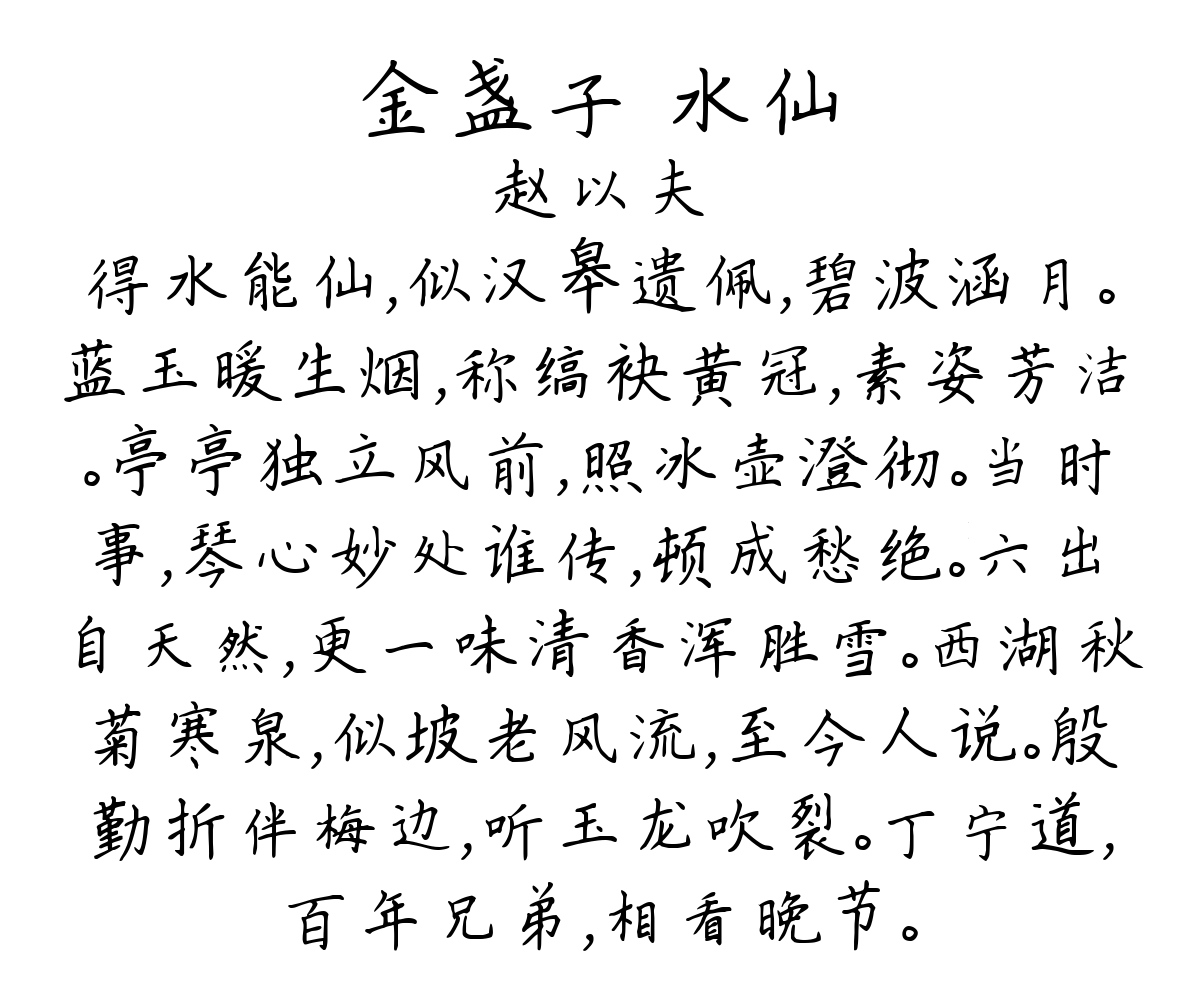 金盏子 水仙
赵以夫
得水能仙,似汉皋遗佩,碧波涵月。
蓝玉暖生烟,称缟袂黄冠,素姿芳洁
。亭亭独立风前,照冰壶澄彻。当时
事,琴心妙处谁传,顿成愁绝。六出
自天然,更一味清香浑胜雪。西湖秋
菊寒泉,似坡老风流,至今人说。殷
勤折伴梅边,听玉龙吹裂。丁宁道,
百年兄弟,相看晚节。